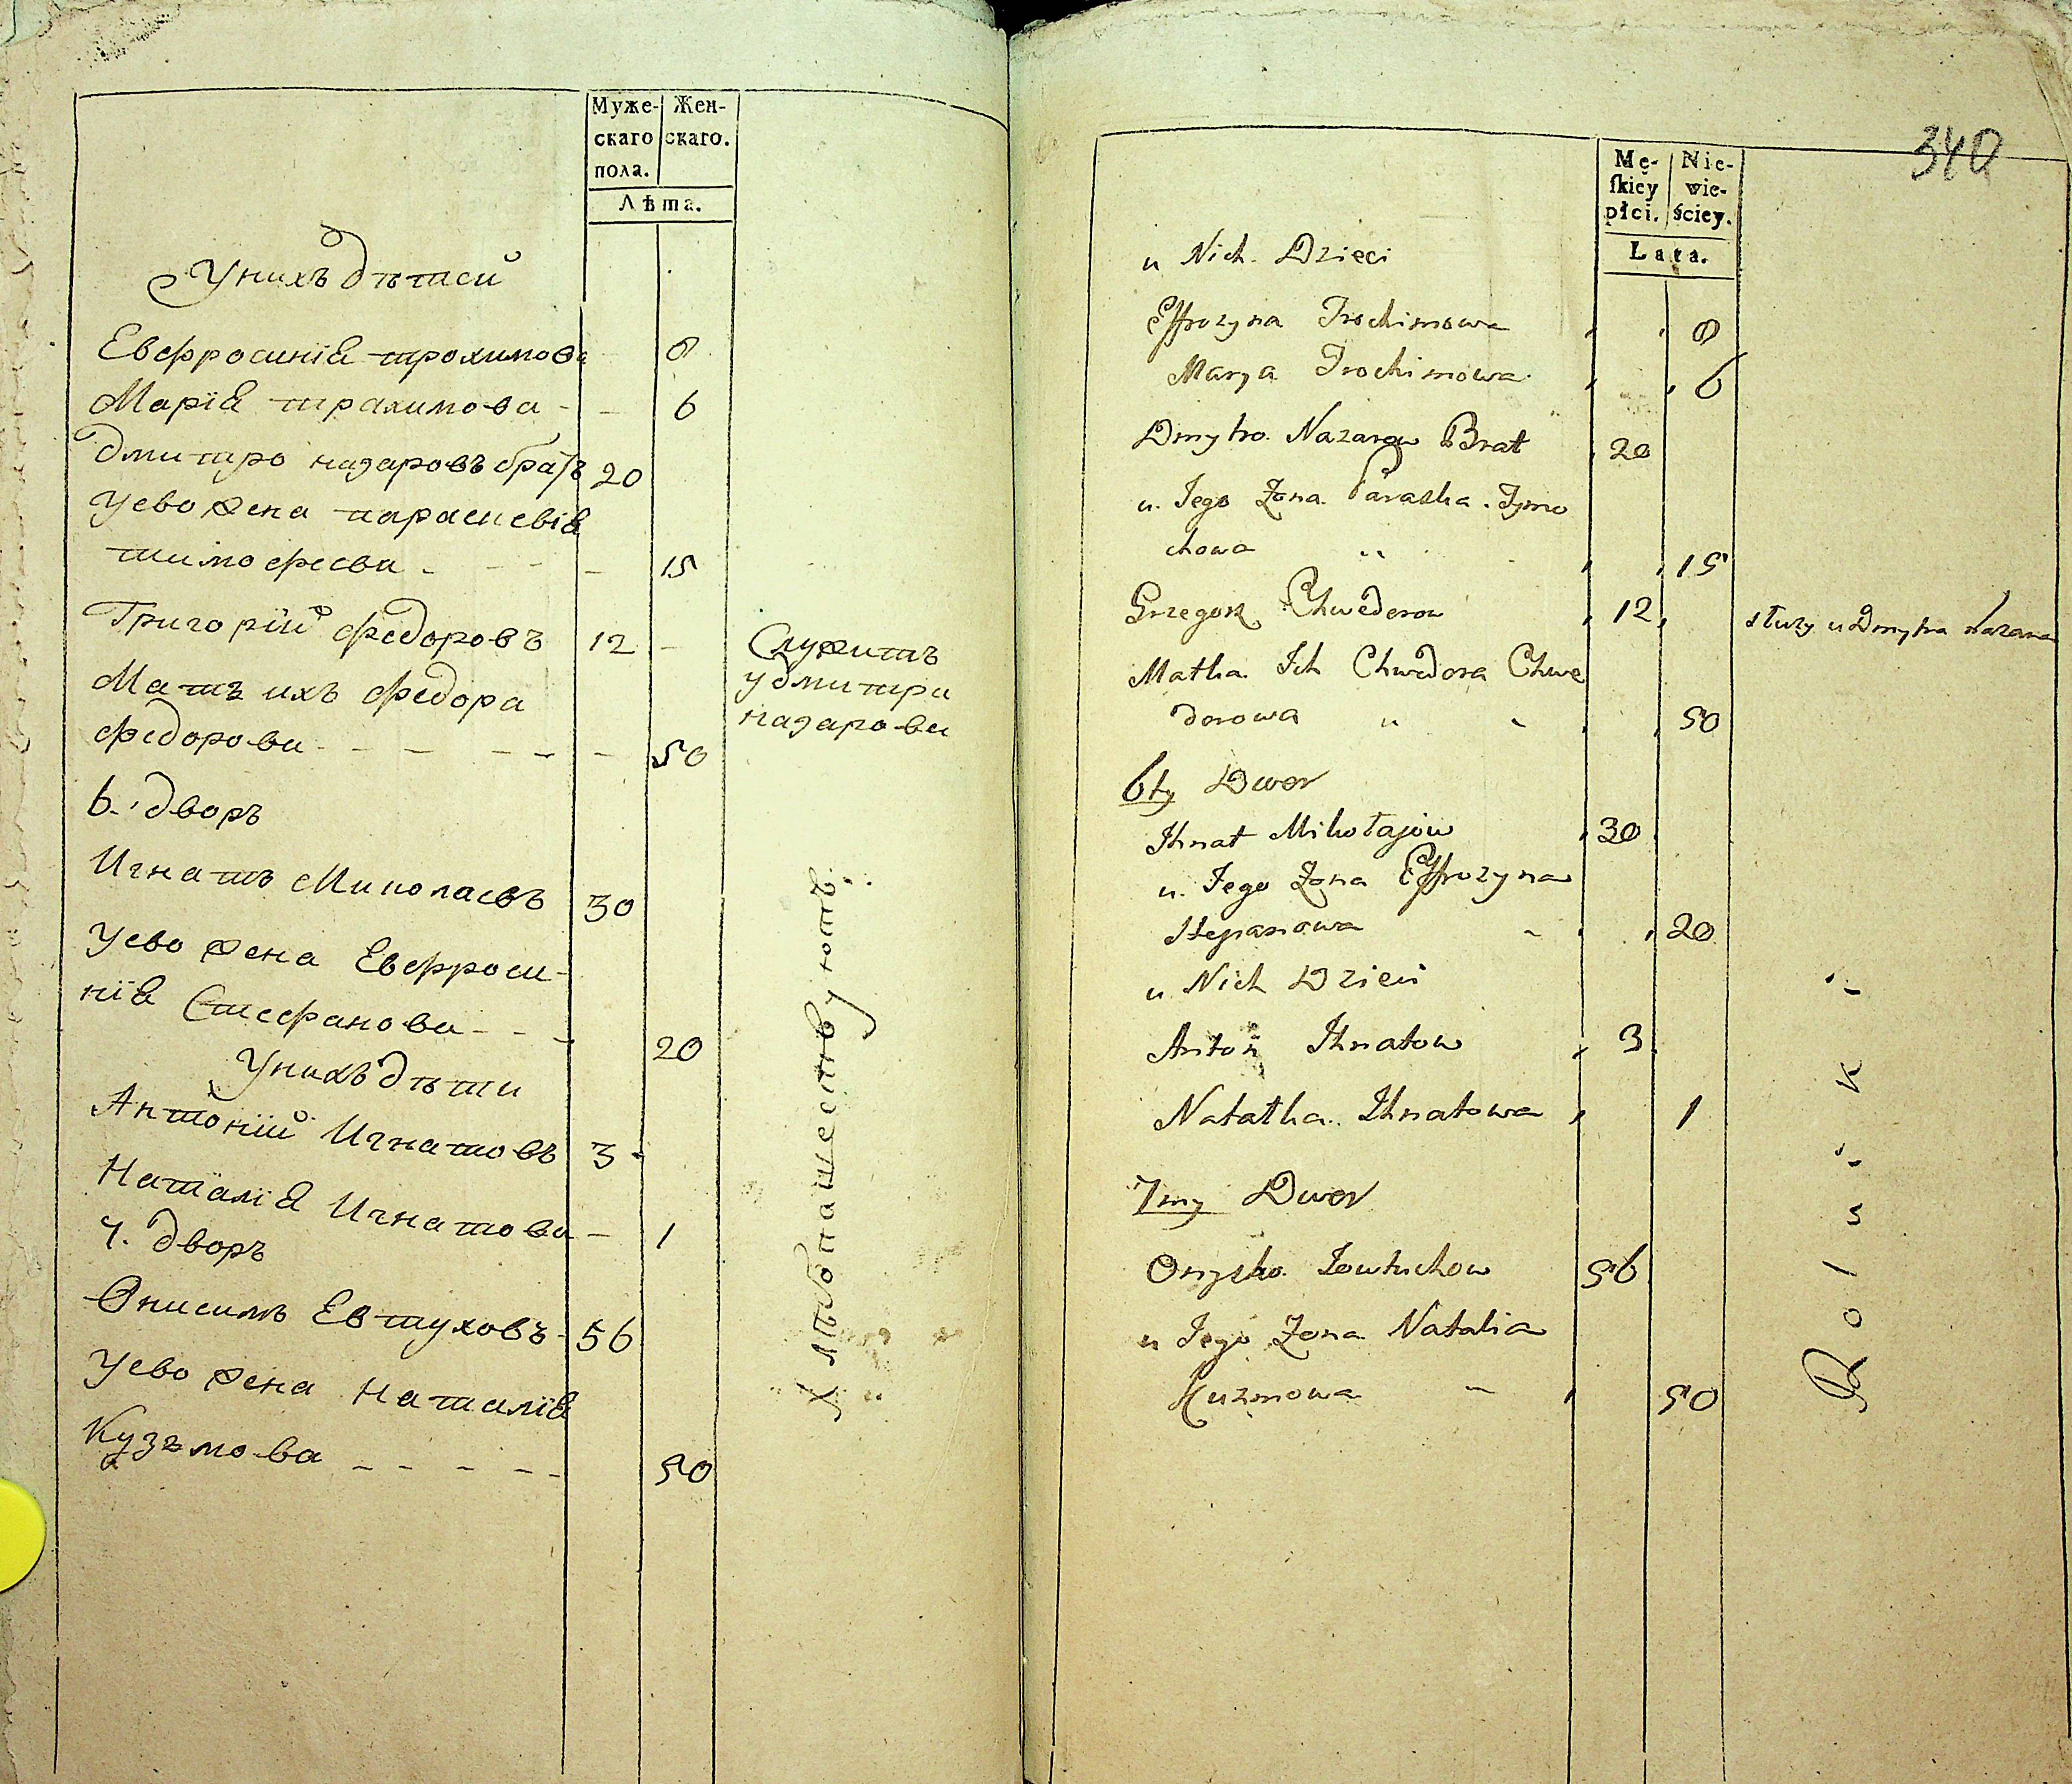 Муже-
скаго
пола.
Жен-
скаго.
Лѣта.
Унихъ дѣтей
Евфросинія трохимова
8
Марія трахимова - - 6
Дмитро назаровъ братъ 20
Уево жена парасневія
тимофеева - - - - 15
Григорій федоровъ 12 -
Служитъ
удмитра
назарова
Мать ихъ федора
федорова - - - - - - 50
6. дворъ
Игнатъ Миколаевъ 30
Уево жена Евфроси-
нія Стефанова - - - 20
Унихъ дѣти
Антоній Игнатовъ 3 -
Наталія Игнатова - 1
7. дворъ
Онисимъ Евтуховъ - 56
Уево жена Наталія
Кузьмова - - - - - 50
Хлѣбопашествуютъ.
340
Mę-
ſkiey
płci.
Nie-
wie-
ściey.
Lata.
u Nich Dzieci
Effrozyna Trochimowa 8
Marya Trochimowa 6
Dmytro Nazarow Brat 20
u Jego Zona Paraska Tymo
chowa 15
Grzegorz Chwedorow 12 służy u Dmytra Nazara
Matka Ich Chwedora Chwe
dorowa 50
6ty Dwor
Ihnat Mikołajow 30
u Jego Zona Effrozyna
Stepanowa 20
u Nich Dzieci
Antoń Ihnatow 3
Natałka Ihnatowa 1
7my Dwor
Onysko Jowtuchow 56
u Jego Zona Natalia
Kuzmowa 50
Rolniki